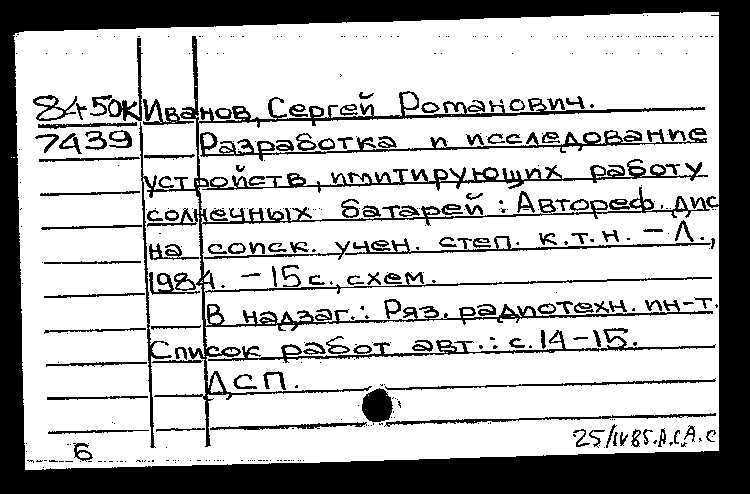 84-50К Иванов, Сергей Романович.
7439 Разработка и исследование
устройств, имитирующих работу
солнечных батарей : Автореф. дис
на соиск. учен. степ. к.т.н. – Л.,
1984. – 15 с., схем.
В надзаг.: Ряз. радиотехн. ин-т.
Список работ авт.: с. 14–15.
ДСП.
6
25/IV85.